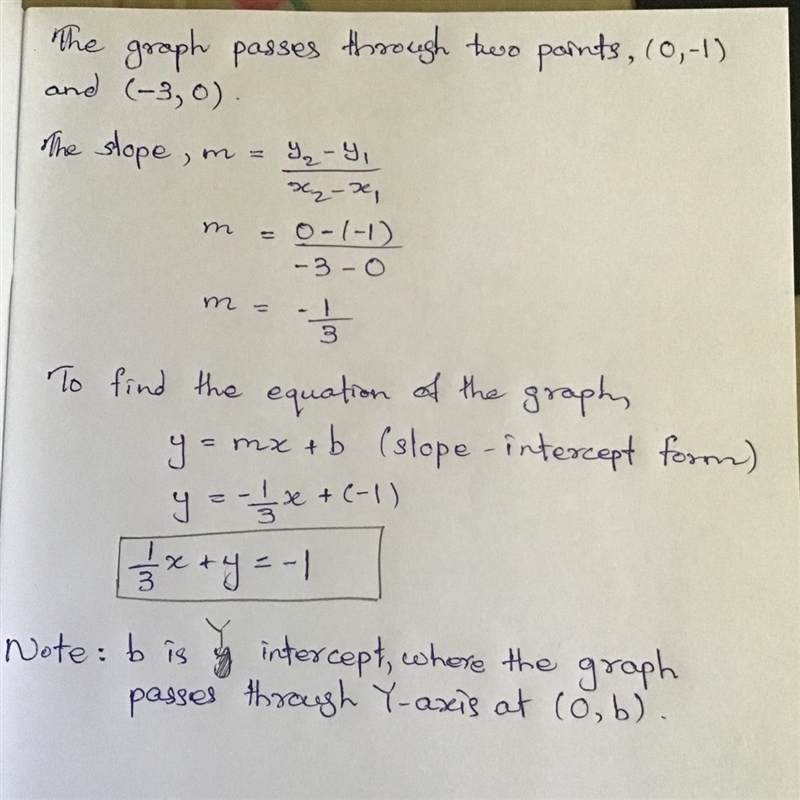 The graph passes through two points, (0,-1)
and (-3,0).
The slope, m = (y₂-y₁)/(x₂-x₁)
m = (0-(-1))/(-3-0)
m = -1/3
To find the equation of the graph,
y = mx + b (slope-intercept form)
y = -1/3 x + (-1)
1/3 x + y = -1
Note: b is Y intercept, where the graph
passes through Y-axis at (0,b).